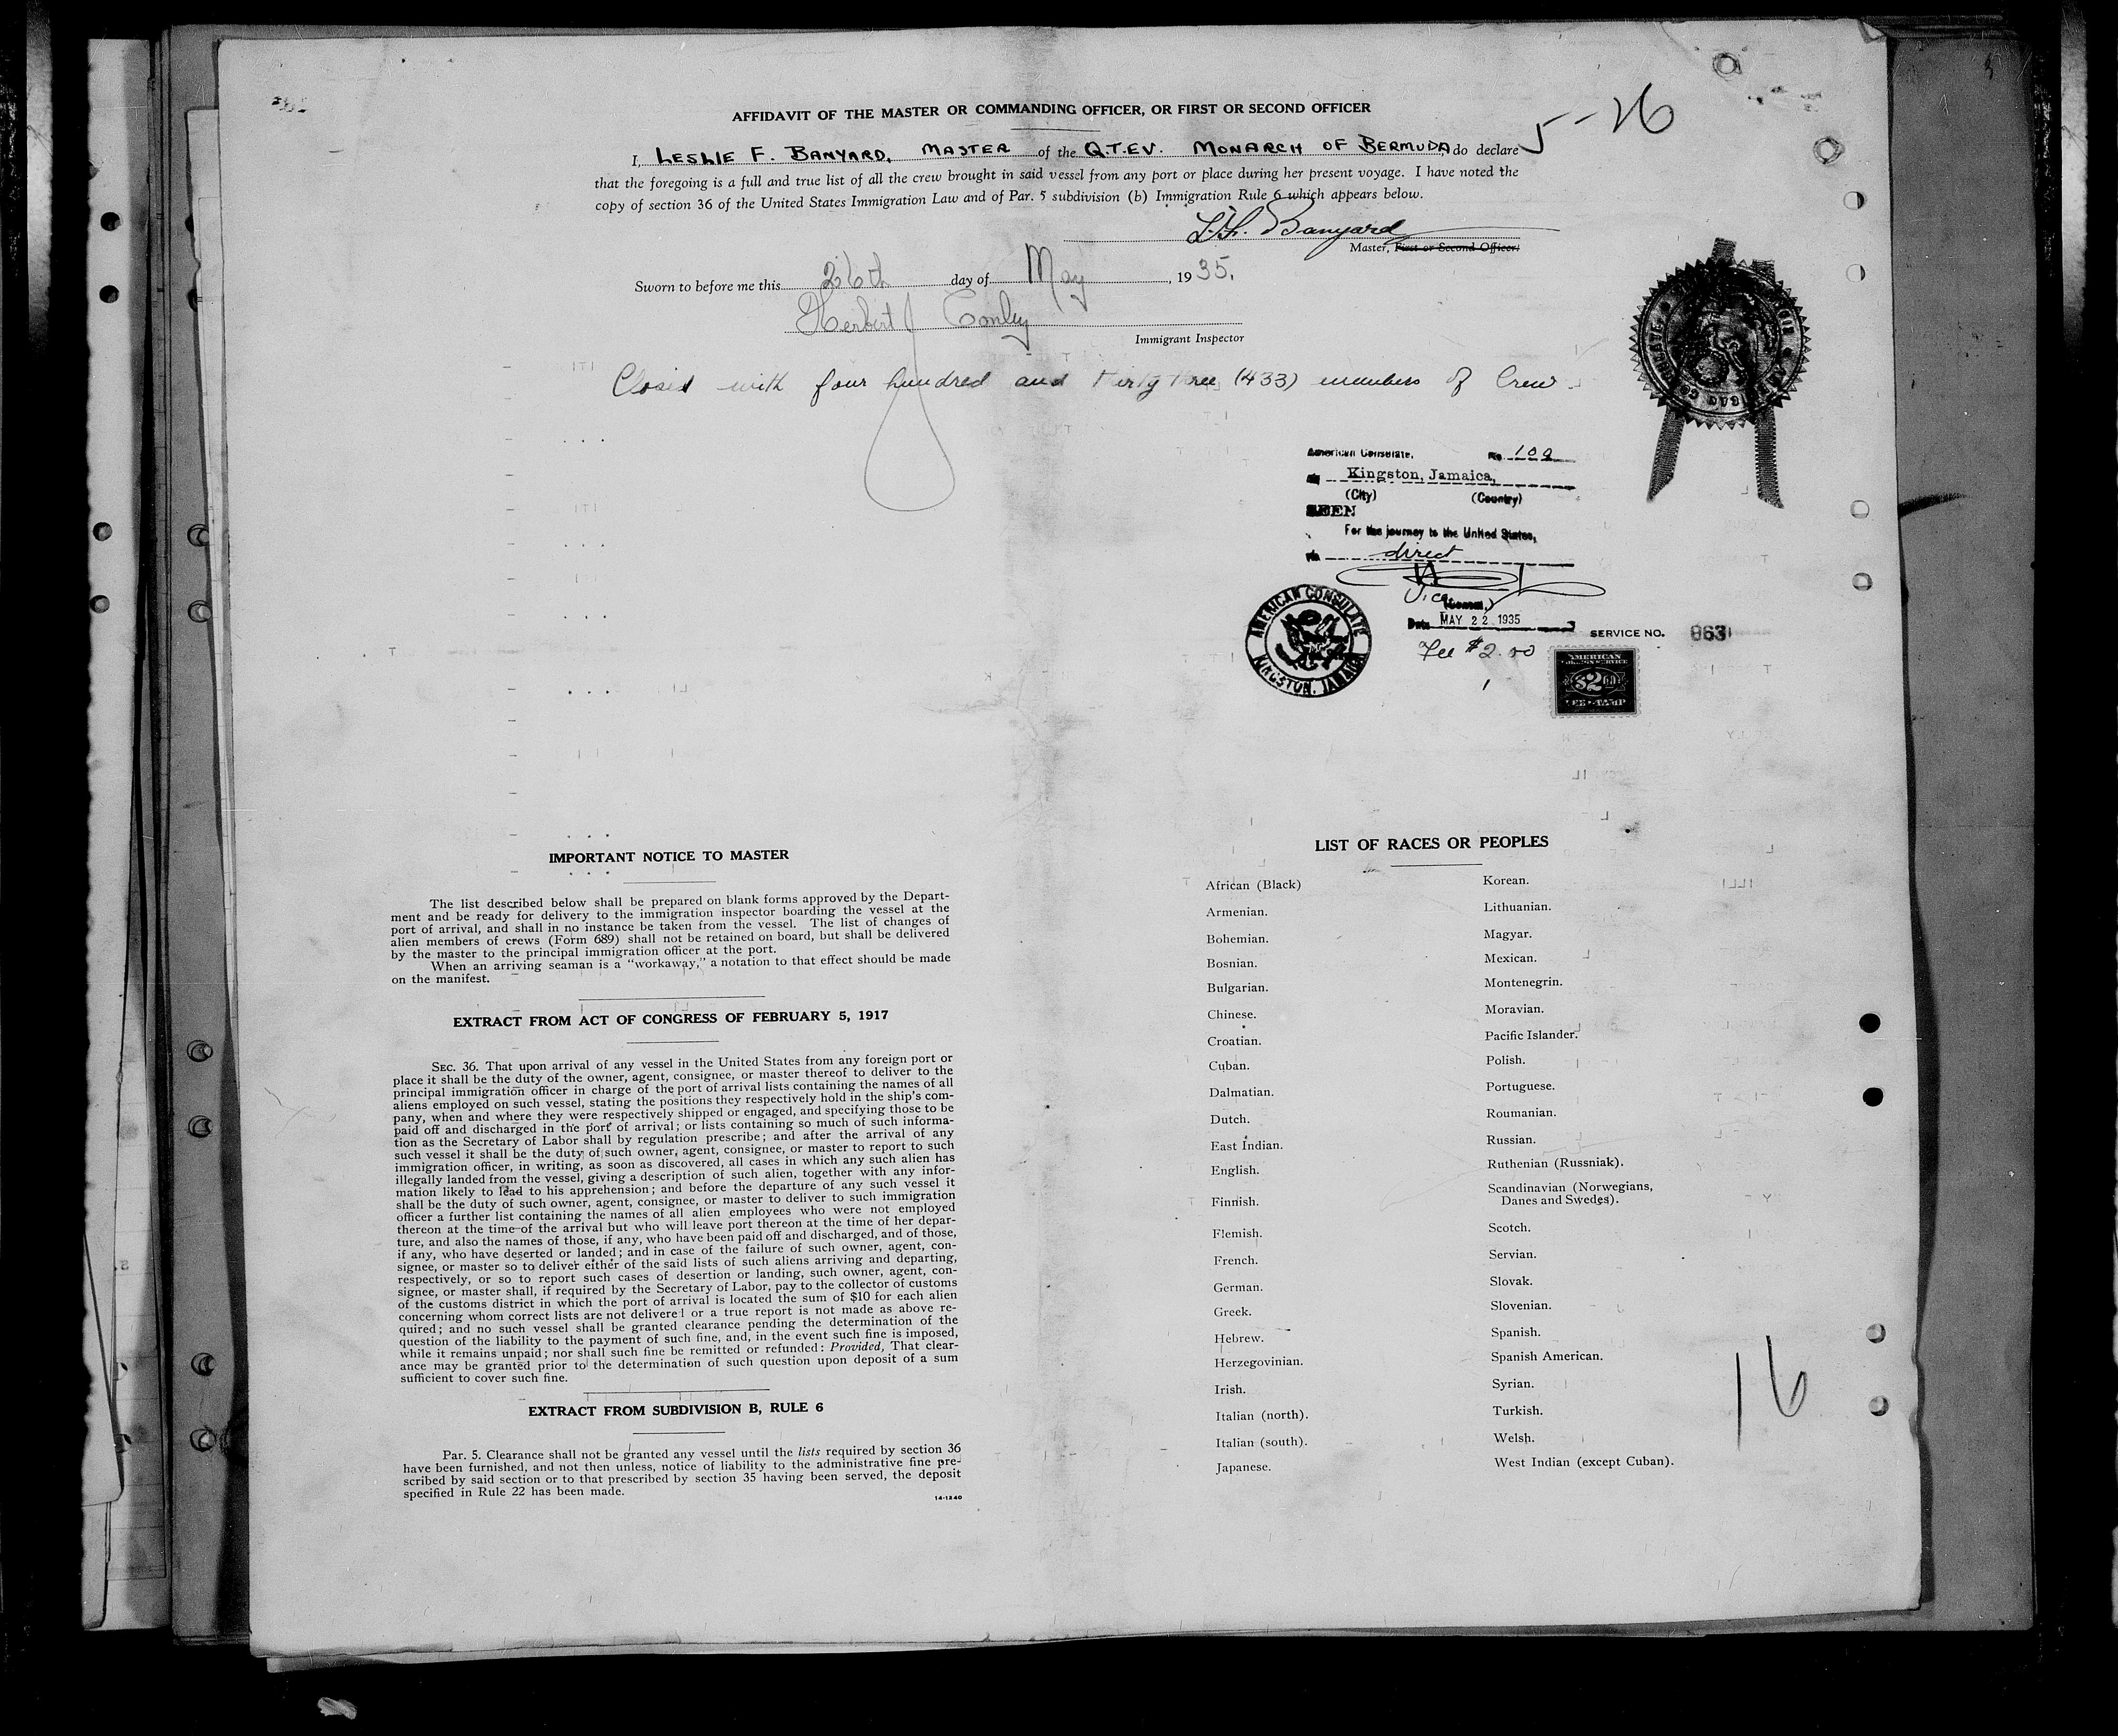 AFFIDAVIT OF THE MASTER OR COMMANDING OFFICER, OR FIRST OR SECOND OFFICER
5-26
I, LESLIE F. BANYARD, MASTER of the Q.T.E.V. MONARCH OF BERMUDA, do declare
that the foregoing is a full and true list of all the crew brought in said vessel from any port or place during her present voyage. I have noted the
copy of section 36 of the United States Immigration Law and of Par. 5 subdivision (b) Immigration Rule 6 which appears below.
L.F. Banyard
Master, First or Second Officer.
Sworn to before me this 26th day of May, 1935.
Herbert J Conley
Immigrant Inspector
Closed with four hundred and thirty three (433) members of Crew.
American Consulate, No. 109
at Kingston, Jamaica,
(City) (Country)
SEEN
For the journey to the United States,
via direct
Vice Consul
Date MAY 22 1935
SERVICE NO. 863
Fee $2.00
AMERICAN CONSULATE
KINGSTON, JAMAICA
AMERICAN
FOREIGN SERVICE
$2.00
FEE STAMP
IMPORTANT NOTICE TO MASTER
The list described below shall be prepared on blank forms approved by the Depart-
ment and be ready for delivery to the immigration inspector boarding the vessel at the
port of arrival, and shall in no instance be taken from the vessel. The list of changes of
alien members of crews (Form 689) shall not be retained on board, but shall be delivered
by the master to the principal immigration officer at the port.
When an arriving seaman is a "workaway," a notation to that effect should be made
on the manifest.
EXTRACT FROM ACT OF CONGRESS OF FEBRUARY 5, 1917
SEC. 36. That upon arrival of any vessel in the United States from any foreign port or
place it shall be the duty of the owner, agent, consignee, or master thereof to deliver to the
principal immigration officer in charge of the port of arrival lists containing the names of all
aliens employed on such vessel, stating the positions they respectively hold in the ship's com-
pany, when and where they were respectively shipped or engaged, and specifying those to be
paid off and discharged in the port of arrival; or lists containing so much of such informa-
tion as the Secretary of Labor shall by regulation prescribe; and after the arrival of any
such vessel it shall be the duty of such owner, agent, consignee, or master to report to such
immigration officer, in writing, as soon as discovered, all cases in which any such alien has
illegally landed from the vessel, giving a description of such alien, together with any infor-
mation likely to lead to his apprehension; and before the departure of any such vessel it
shall be the duty of such owner, agent, consignee, or master to deliver to such immigration
officer a further list containing the names of all alien employees who were not employed
thereon at the time of the arrival but who will leave port thereon at the time of her depar-
ture, and also the names of those, if any, who have been paid off and discharged, and of those,
if any, who have deserted or landed; and in case of the failure of such owner, agent, con-
signee, or master so to deliver either of the said lists of such aliens arriving and departing,
respectively, or so to report such cases of desertion or landing, such owner, agent, con-
signee, or master shall, if required by the Secretary of Labor, pay to the collector of customs
of the customs district in which the port of arrival is located the sum of $10 for each alien
concerning whom correct lists are not delivered or a true report is not made as above re-
quired; and no such vessel shall be granted clearance pending the determination of the
question of the liability to the payment of such fine, and, in the event such fine is imposed,
while it remains unpaid; nor shall such fine be remitted or refunded: Provided, That clear-
ance may be granted prior to the determination of such question upon deposit of a sum
sufficient to cover such fine.
EXTRACT FROM SUBDIVISION B, RULE 6
Par. 5. Clearance shall not be granted any vessel until the lists required by section 36
have been furnished, and not then unless, notice of liability to the administrative fine pre-
scribed by said section or to that prescribed by section 35 having been served, the deposit
specified in Rule 22 has been made.
14-1240
LIST OF RACES OR PEOPLES
African (Black)
Armenian.
Bohemian.
Bosnian.
Bulgarian.
Chinese.
Croatian.
Cuban.
Dalmatian.
Dutch.
East Indian.
English.
Finnish.
Flemish.
French.
German.
Greek.
Hebrew.
Herzegovinian.
Irish.
Italian (north).
Italian (south).
Japanese.
Korean.
Lithuanian.
Magyar.
Mexican.
Montenegrin.
Moravian.
Pacific Islander.
Polish.
Portuguese.
Roumanian.
Russian.
Ruthenian (Russniak).
Scandinavian (Norwegians,
Danes and Swedes).
Scotch.
Servian.
Slovak.
Slovenian.
Spanish.
Spanish American.
Syrian.
Turkish.
Welsh.
West Indian (except Cuban).
16